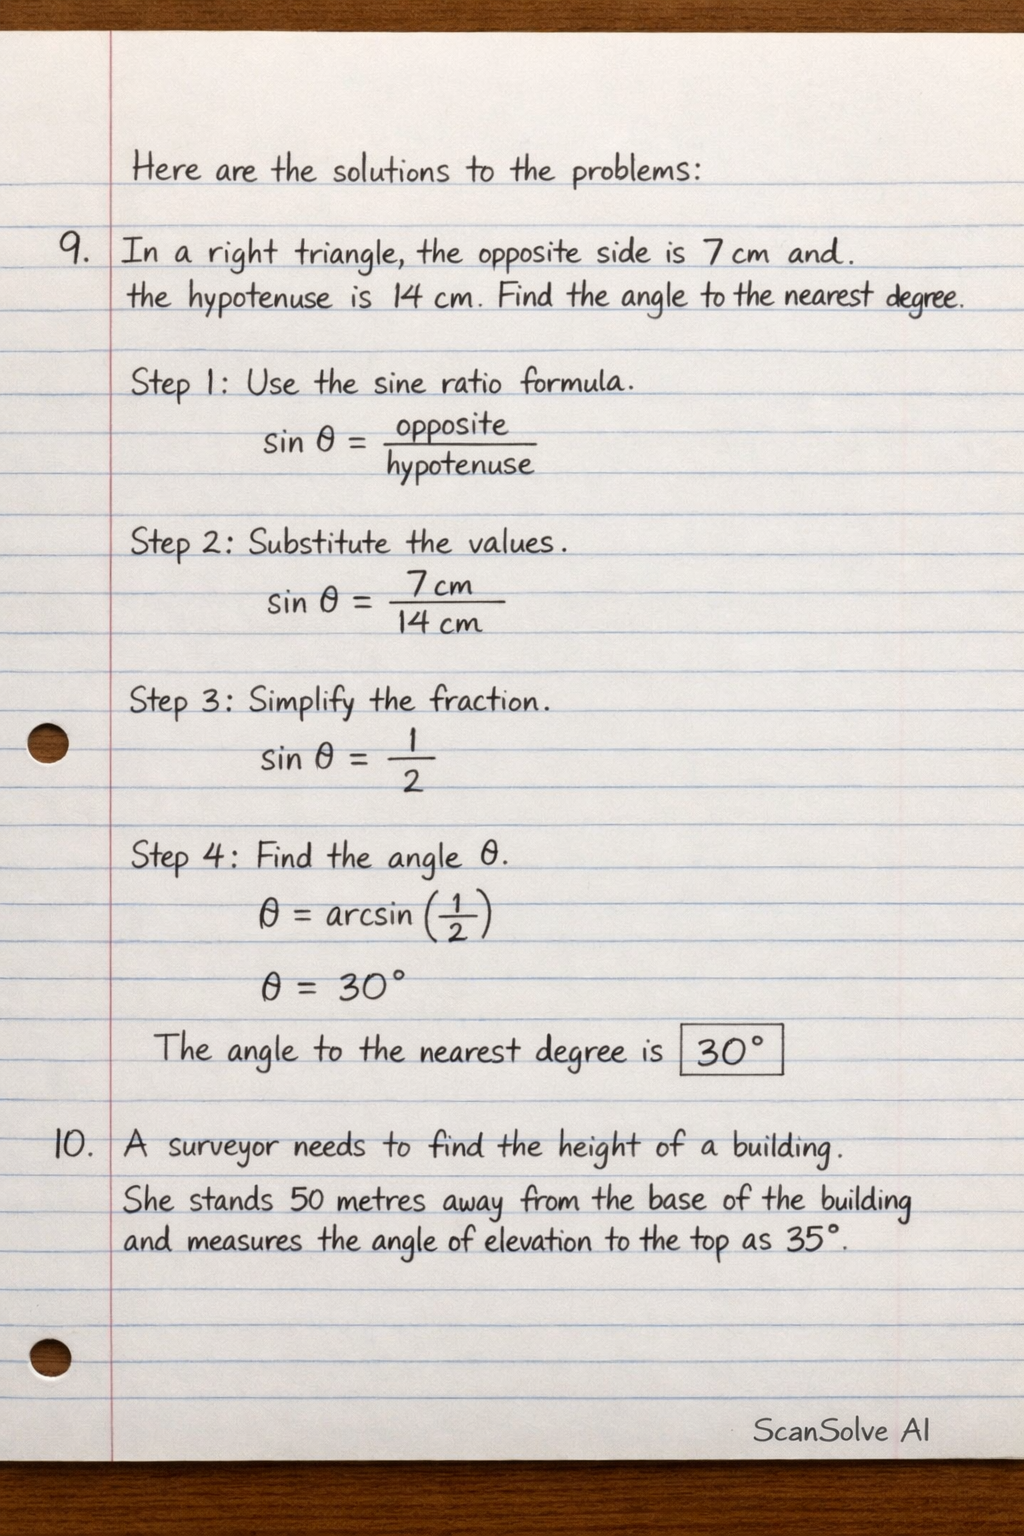 Here are the solutions to the problems:
9. In a right triangle, the opposite side is 7 cm and.
the hypotenuse is 14 cm. Find the angle to the nearest degree.
Step 1: Use the sine ratio formula.
sin θ = opposite / hypotenuse
Step 2: Substitute the values.
sin θ = 7 cm / 14 cm
Step 3: Simplify the fraction.
sin θ = 1 / 2
Step 4: Find the angle θ.
θ = arcsin (1/2)
θ = 30°
The angle to the nearest degree is 30°
10. A surveyor needs to find the height of a building.
She stands 50 metres away from the base of the building
and measures the angle of elevation to the top as 35°.
ScanSolve AI